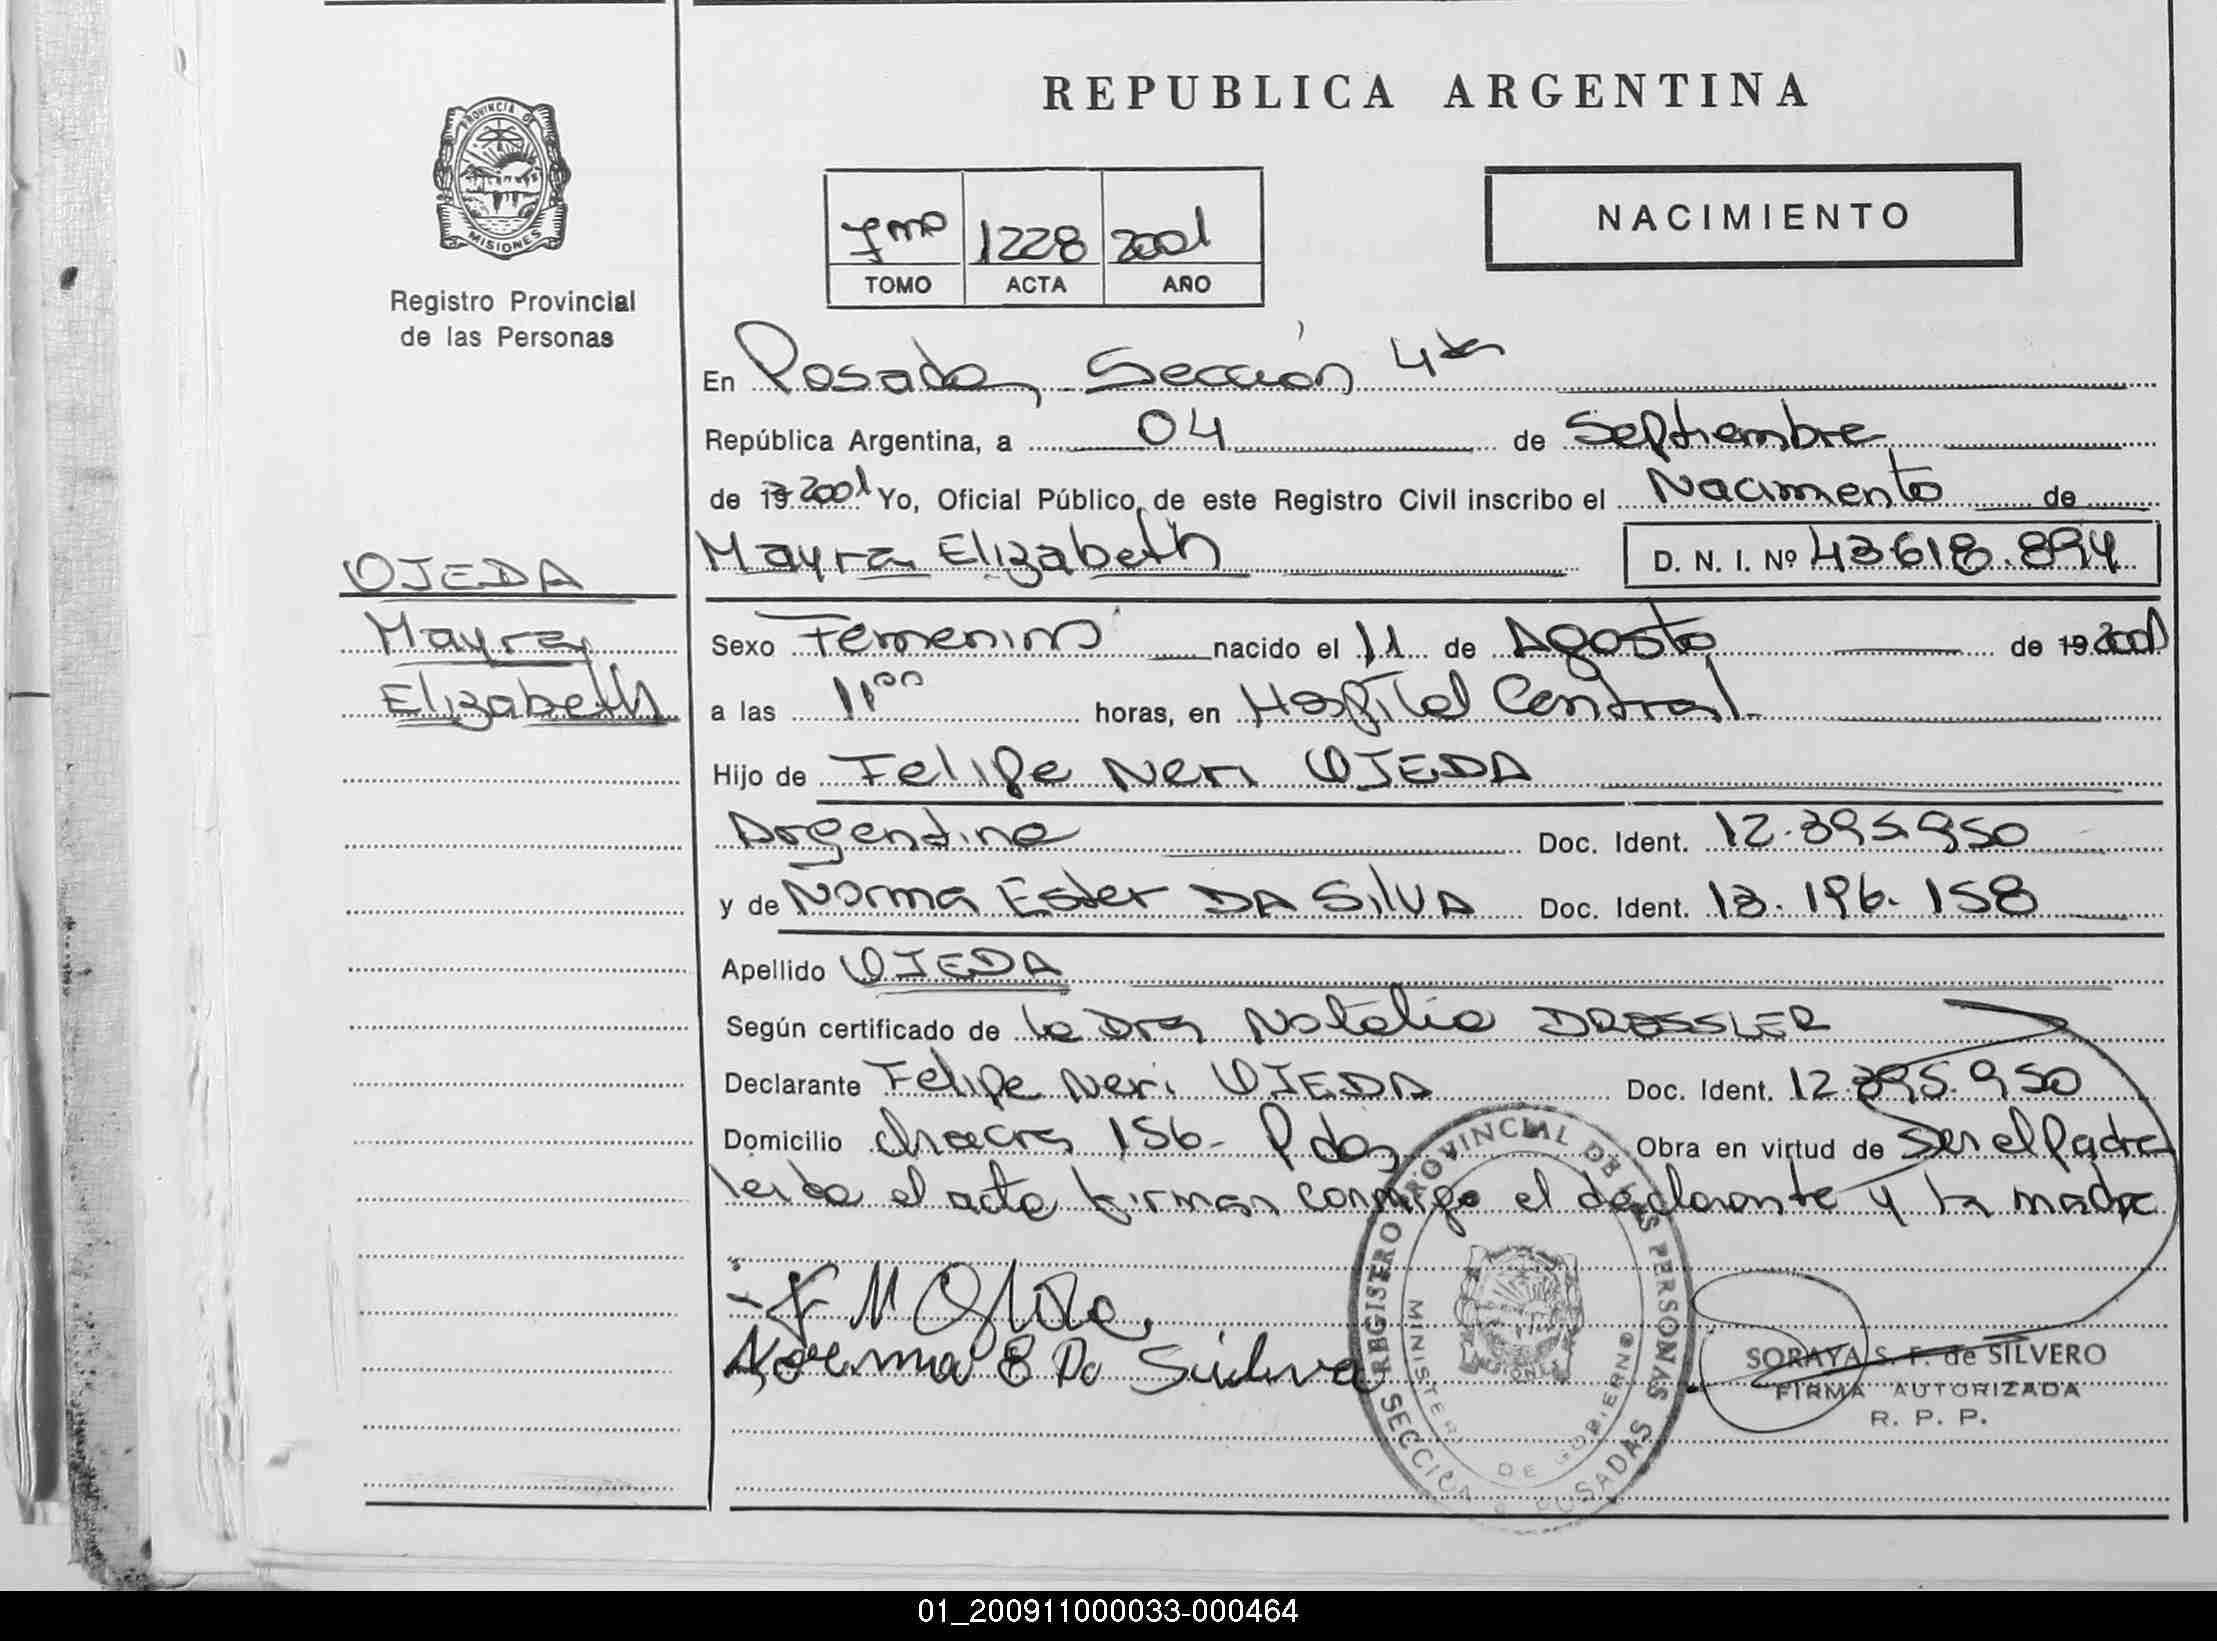 REPUBLICA ARGENTINA
PROVINCIA DE
MISIONES
Registro Provincial
de las Personas
7mo 1228 2001
TOMO ACTA AÑO
NACIMIENTO
En Posadas, Sección 4ta
República Argentina, a 04 de Septiembre
de 19 2001 Yo, Oficial Público de este Registro Civil inscribo el Nacimiento de
Mayra Elizabeth D. N. I. Nº 43.618.894
OJEDA
Mayra
Elizabeth
Sexo Femenino nacido el 11 de Agosto de 19 2001
a las 11 00 horas, en Hospital Central
Hijo de Felipe Neri OJEDA
Argentino Doc. Ident. 12.395.950
y de Norma Ester DA SILVA Doc. Ident. 13.196.158
Apellido OJEDA
Según certificado de la Dra Natalia DRESSLER
Declarante Felipe Neri OJEDA Doc. Ident. 12.395.950
Domicilio chacra 156- Pdas Obra en virtud de Ser el Padre
leida el acta firman conmigo el declarante y la madre
F N Ojeda
Norma E Da Silva
REGISTRO PROVINCIAL DE LAS PERSONAS
MINISTERIO DE GOBIERNO
MISIONES
SECCION POSADAS
SORAYA S. F. de SILVERO
FIRMA AUTORIZADA
R. P. P.
01_200911000033-000464